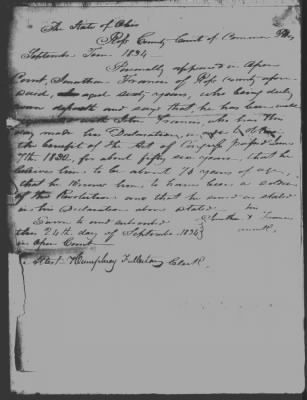 The State of Ohio
Ross County Court of Common Pleas
September Term 1834
Personally appeared in open
Court Jonathan of Ross County afore
said, aged sixty years, who being duly
sworn deposeth and says that he has been well
with John who has this
day made his Declaration, in to obtain
the benefit of the Act of Congress passed June
7th 1832, for about fifty six years, that he
believes him to be about 76 years of age,
that he knows him to have been a soldier
of the Revolution and that he served as stated
in his Declaration above stated. his
Sworn to and subscribed
this 24th day of September 1834 mark
in open Court
Attest Humphrey Fullerton Clerk.